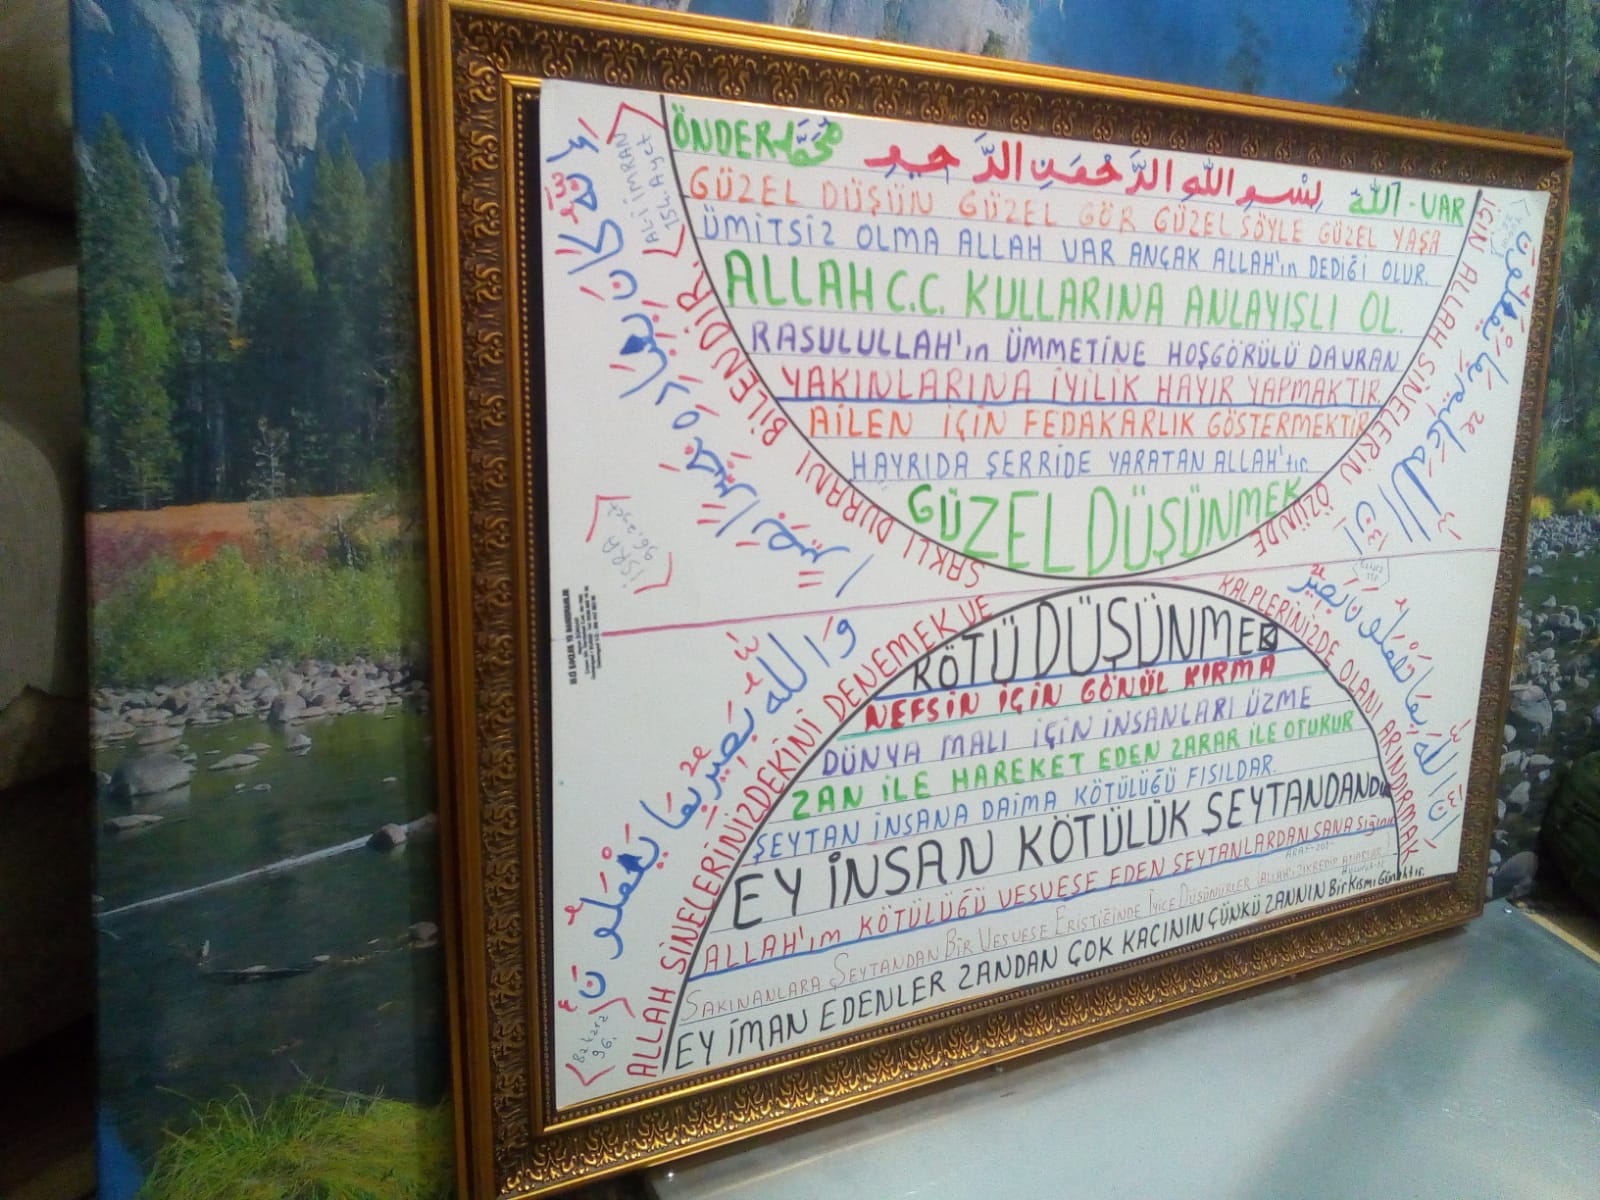 ÖNDER محمد بِسْمِ اللهِ الرَّحْمٰنِ الرَّحِيمِ الله - VAR
GÜZEL DÜŞÜN GÜZEL GÖR GÜZEL SÖYLE GÜZEL YAŞA
ÜMİTSİZ OLMA ALLAH VAR ANÇAK ALLAH'ın DEDİĞİ OLUR.
ALLAH C.C. KULLARINA ANLAYIŞLI OL.
RASULULLAH'ın ÜMMETİNE HOŞGÖRÜLÜ DAVRAN
YAKINLARINA İYİLİK HAYIR YAPMAKTIR.
AİLEN İÇİN FEDAKARLIK GÖSTERMEKTİR
HAYRIDA ŞERRİDE YARATAN ALLAH'tır.
GÜZEL DÜŞÜNMEK
KÖTÜ DÜŞÜNMEK
NEFSİN İÇİN GÖNÜL KIRMA
DÜNYA MALI İÇİN İNSANLARI ÜZME
ZAN İLE HAREKET EDEN ZARAR İLE OTURUR
ŞEYTAN İNSANA DAİMA KÖTÜLÜĞÜ FISILDAR.
EY İNSAN KÖTÜLÜK ŞEYTANDANDIR
ALLAH'ım KÖTÜLÜĞÜ VESVESE EDEN ŞEYTANLARDAN SANA Sığınırım
SAKINANLARA ŞEYTANDAN BİR VESVESE ERİŞTİĞİNDE İYİCE DÜŞÜNÜRLER (ALLAH'ı ZİKREDİP ANARLAR)
ARAF-201-
EY İMAN EDENLER ZANDAN ÇOK KAÇININ ÇÜNKÜ ZANNIN Bir Kısmı Günahtır.
ALLAH SİNELERİNİZDEKİNİ DENEMEK VE
KALPLERİNİZDE OLANI ARINDIRMAK
İÇİN ALLAH SİNELERİN ÖZÜNDE
SAKLI DURANI BİLENDİR.
ALİ İMRAN
154. Ayet
إِنَّهُ كَانَ بِعِبَادِهِ خَبِيرًا بَصِيرًا
İSRA
96. ayet
إِنَّ اللهَ عَلِيمٌ بِمَا يَفْعَلُونَ
وَاللهُ بَصِيرٌ بِمَا يَعْمَلُونَ
Bakara
96.
إِنَّ اللهَ بِمَا تَعْمَلُونَ بَصِيرٌ